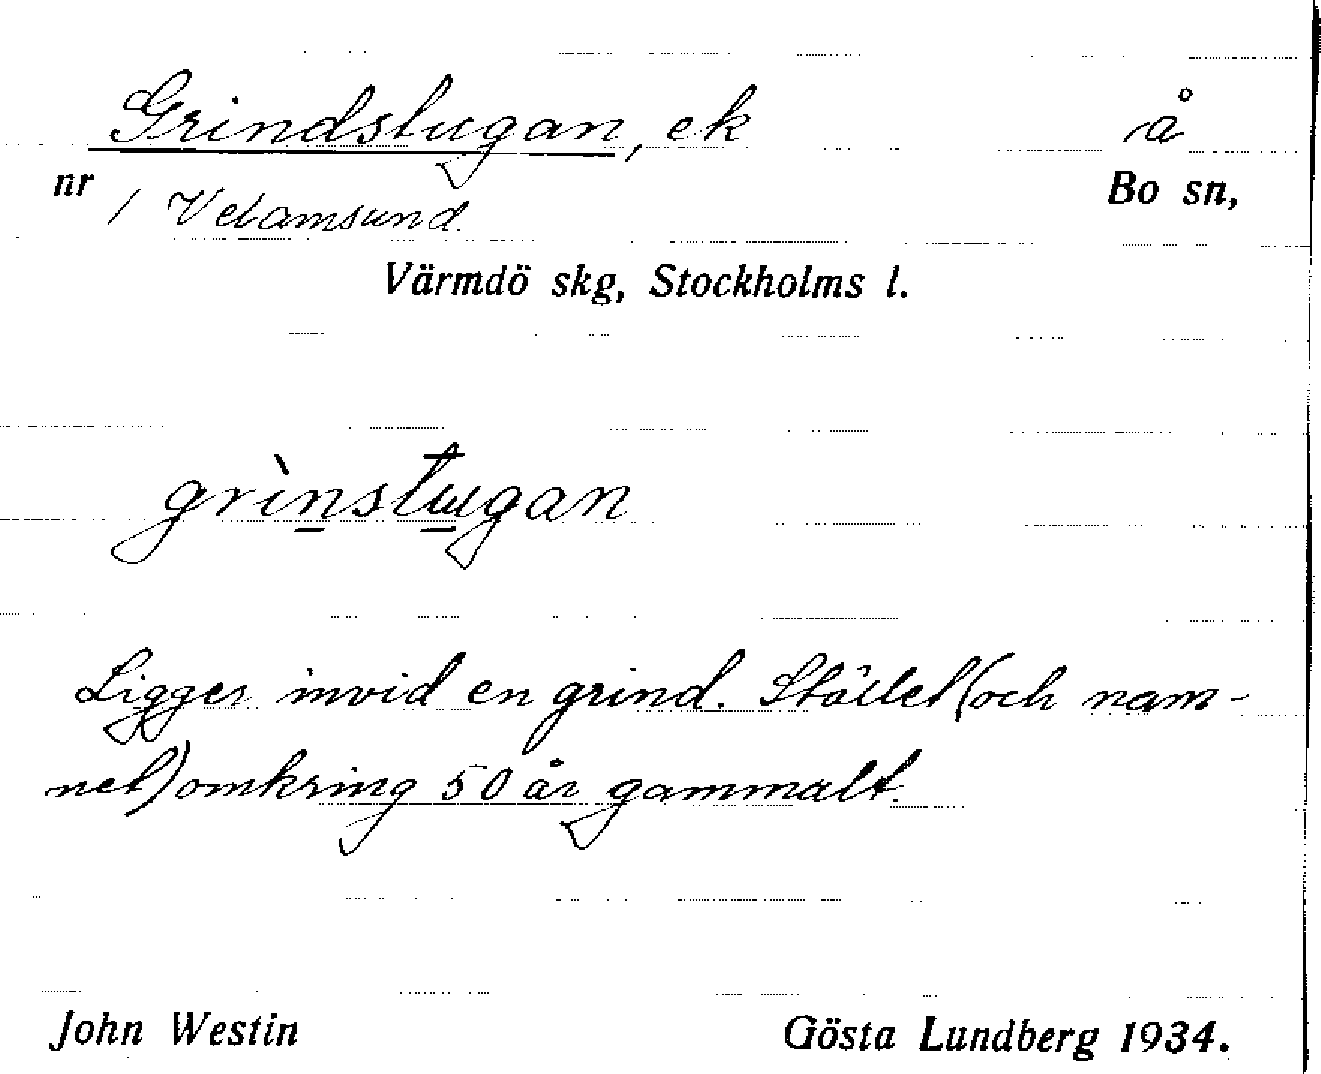 Grindstugan, ek å
nr 1 Velamsund. Bo sn,
Värmdö skg, Stockholms l.
grìnstugan
Ligger invid en grind. Stället (och nam-
net) omkring 50 år gammalt.
John Westin Gösta Lundberg 1934.